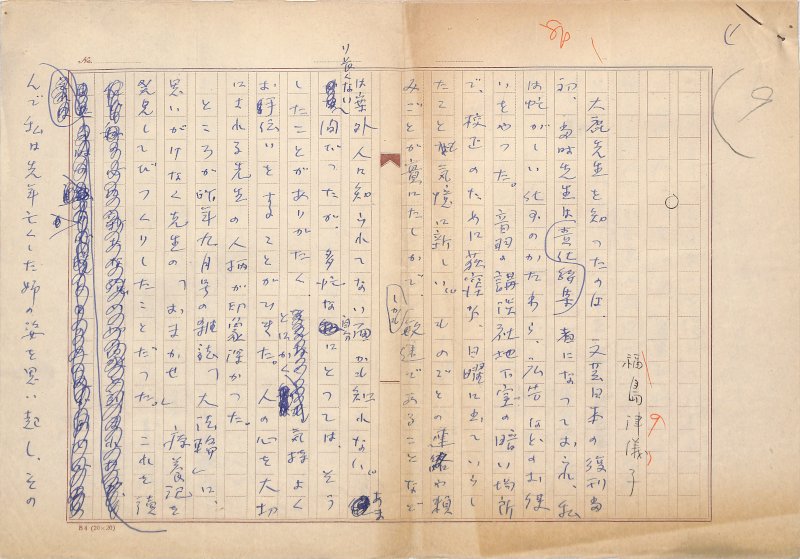 福島津儀子
大鹿先生を知ったのは、文芸日本の復刊当
初、当時先生は責任編集者になっておられ、私
は忙がしい仕事のかたわら、広告などのお使
いをやった。音羽の講談社地下室の暗い場所
で、校正のために荻窪から、日曜に出ていらし
たことも記憶に新しい。ものごとの連絡や頼
みごとが実にたしかで、しかも敏速であることなど
は案外人に知られてない面かも知れない。あま
り長くない
間だったが、多忙な自分にとっては、そう
したことがありがたく、とにかく気持よく
お手伝いをすることができた。人の心を大切
にされる先生の人柄が印象深かった。
ところが昨年九月号の雑誌「大法輪」に、
思いがけなく先生の「おまかせ」療養記を
発見してびっくりしたことだった。これを読
んで私は先年亡くした姉の姿を思い起し、その
No.
B4 (20×20)